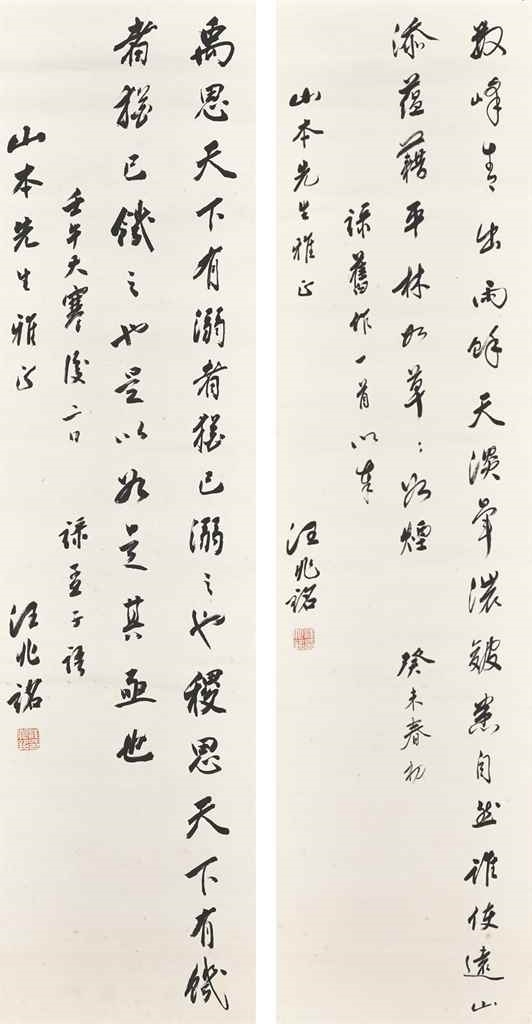 數峰青出雨餘天淡暈濃皴自然誰使遠山
添蘊藉平林如草〻如煙 癸未春初
錄舊作一首以奉
山本先生雅正 汪兆銘
禹思天下有溺者猶己溺之也稷思天下有饑
者猶己饑之也是以如是其亟也
壬午大寒後二日 錄孟子語
山本先生雅正 汪兆銘